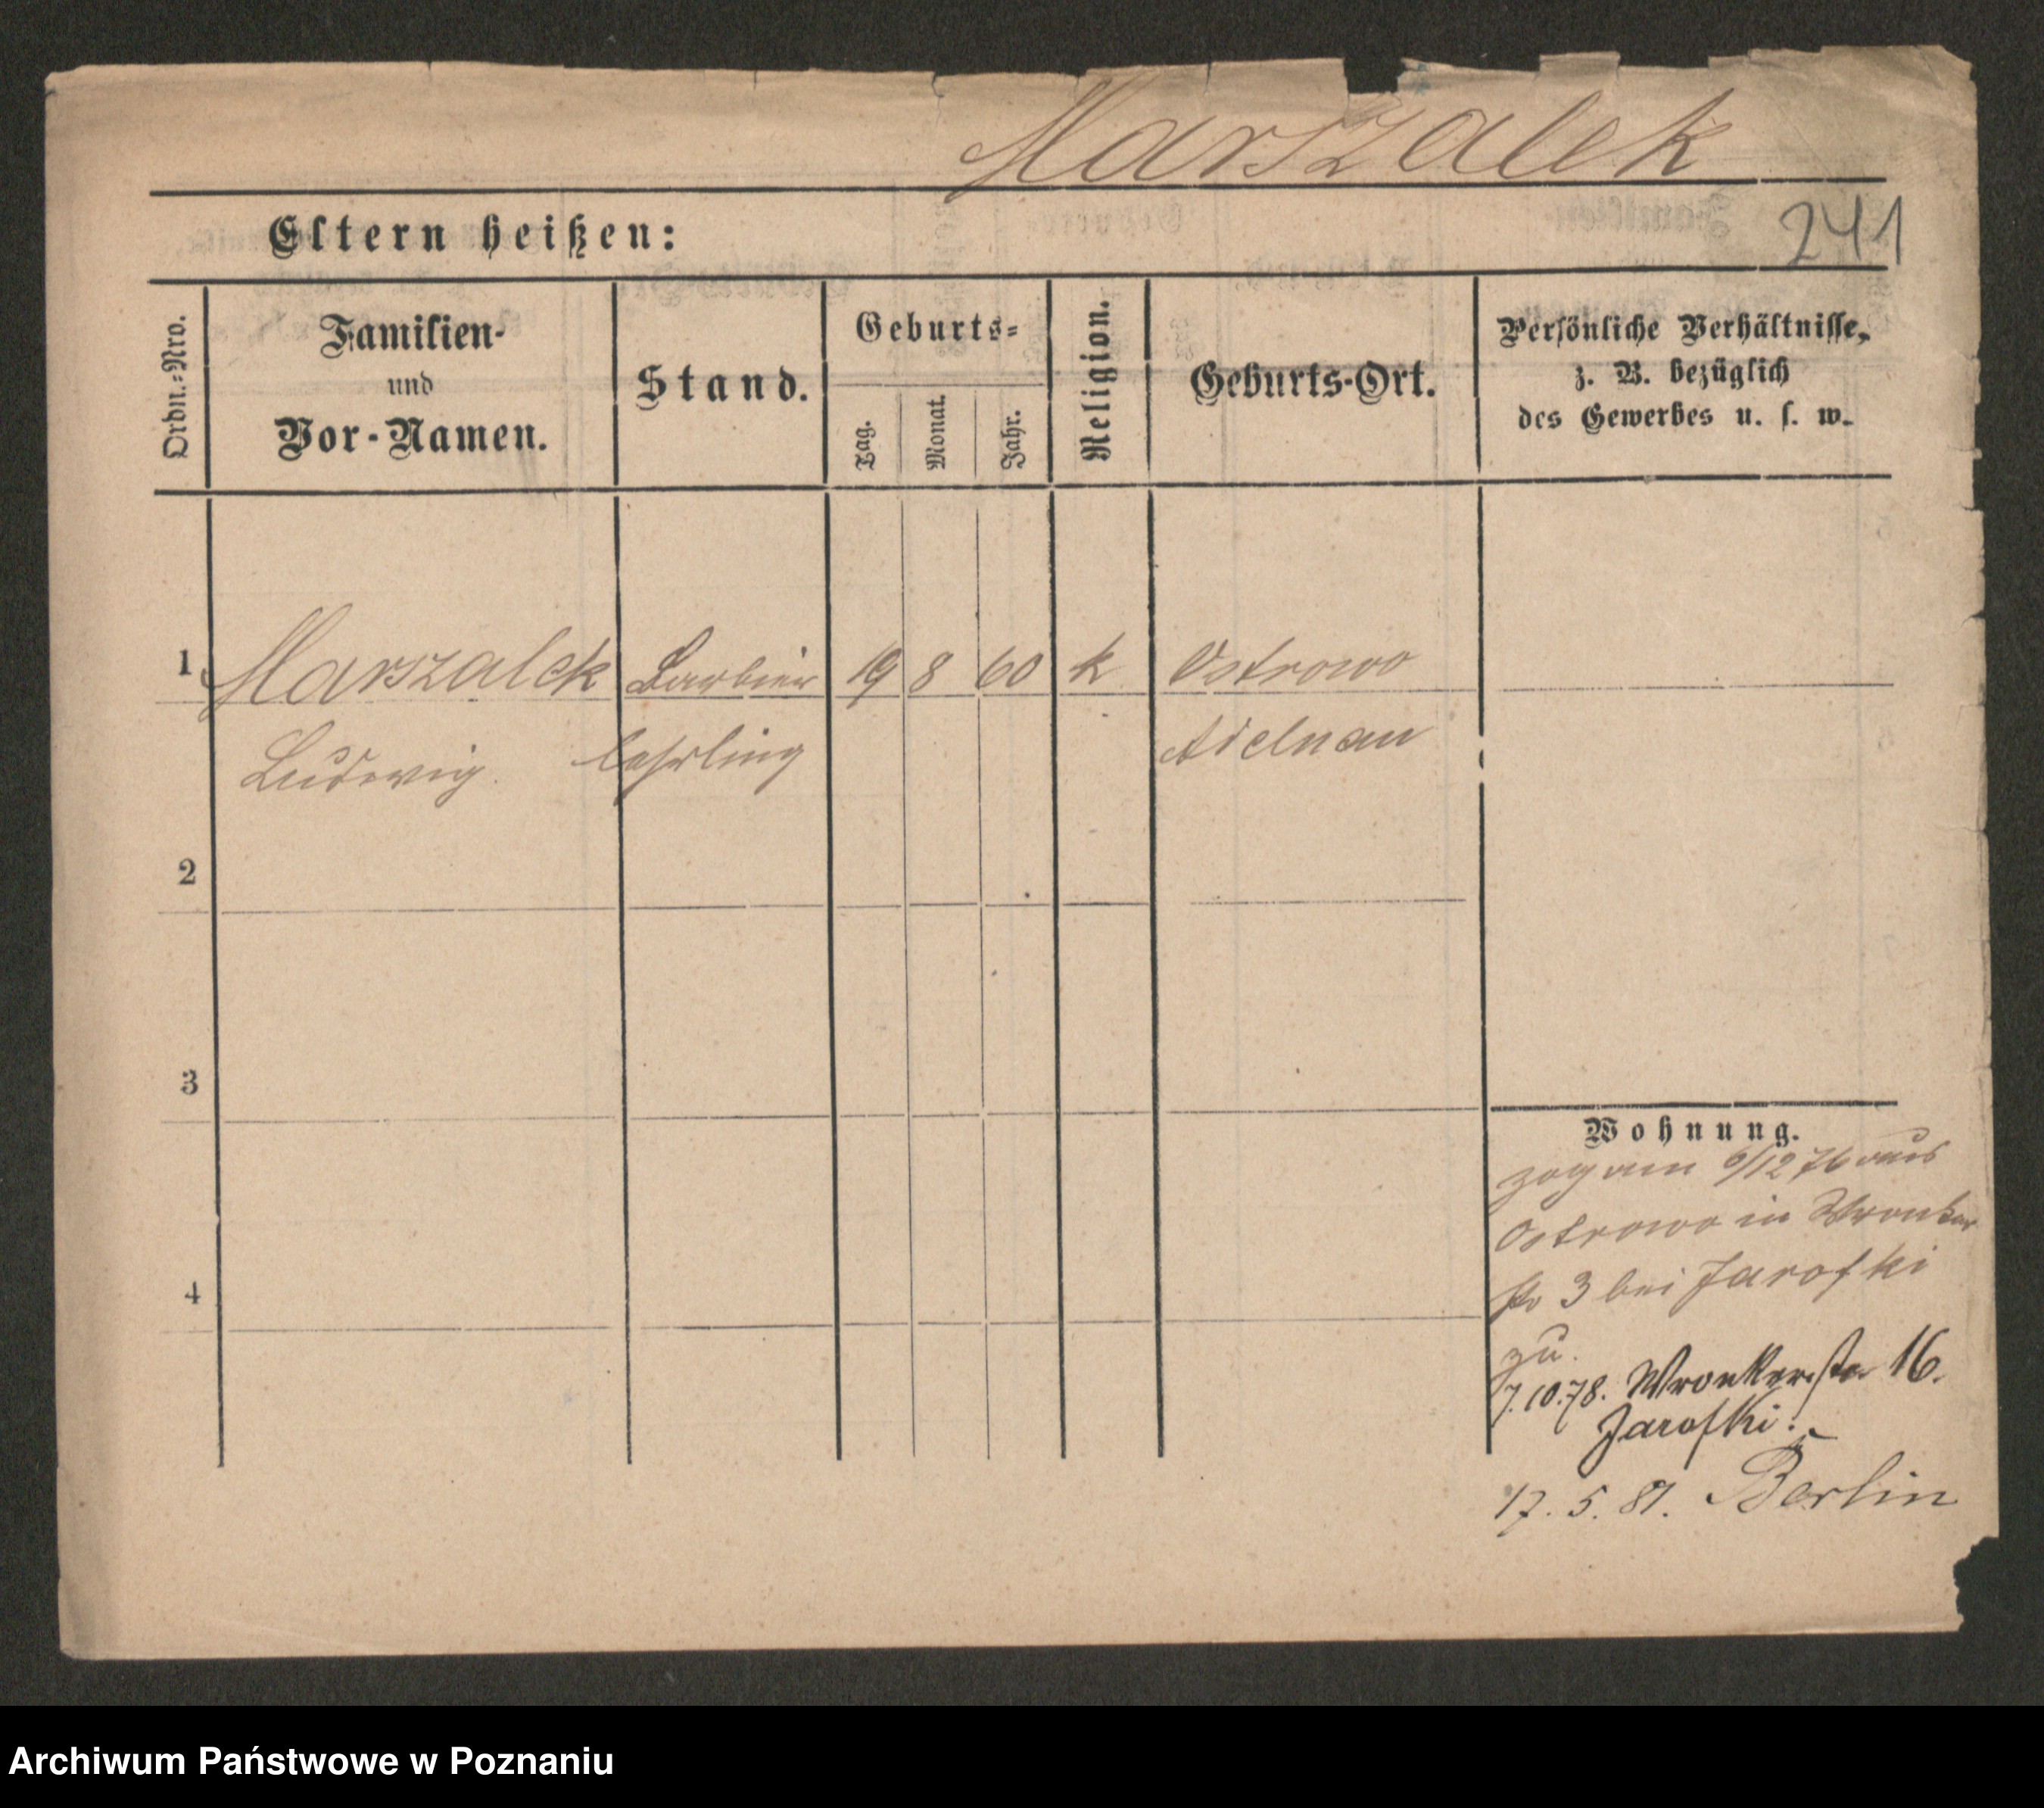 Marszalek
241
Eltern heißen:
Ordn.-Nro.
Familien-
und
Vor-Namen.
Stand.
Geburts-
Tag.
Monat.
Jahr.
Religion.
Geburts-Ort.
Persönliche Verhältnisse,
z. B. bezüglich
des Gewerbes u. s. w.
1 Marszalek Barbier 19 8 60 k Ostrowo
Ludwig. lehrling Adelnau
2
3
4
Wohnung.
zog am 6/12 76 aus
Ostrowo in Wronker
str 3 bei Jarofki
zu.
7.10.78. Wronkerstr 16.
Jarofki.
17. 5. 81. Berlin
Archiwum Państwowe w Poznaniu